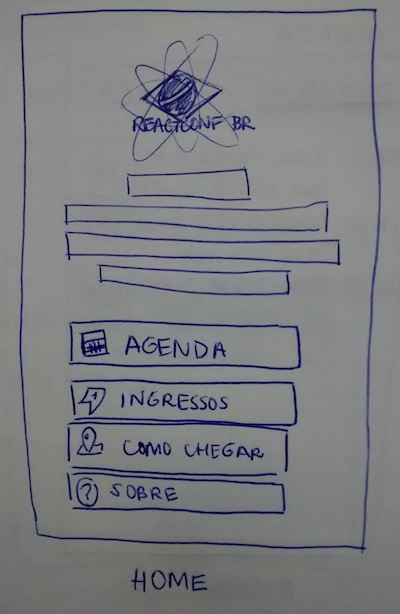 REACTCONF BR
AGENDA
INGRESSOS
COMO CHEGAR
? SOBRE
HOME